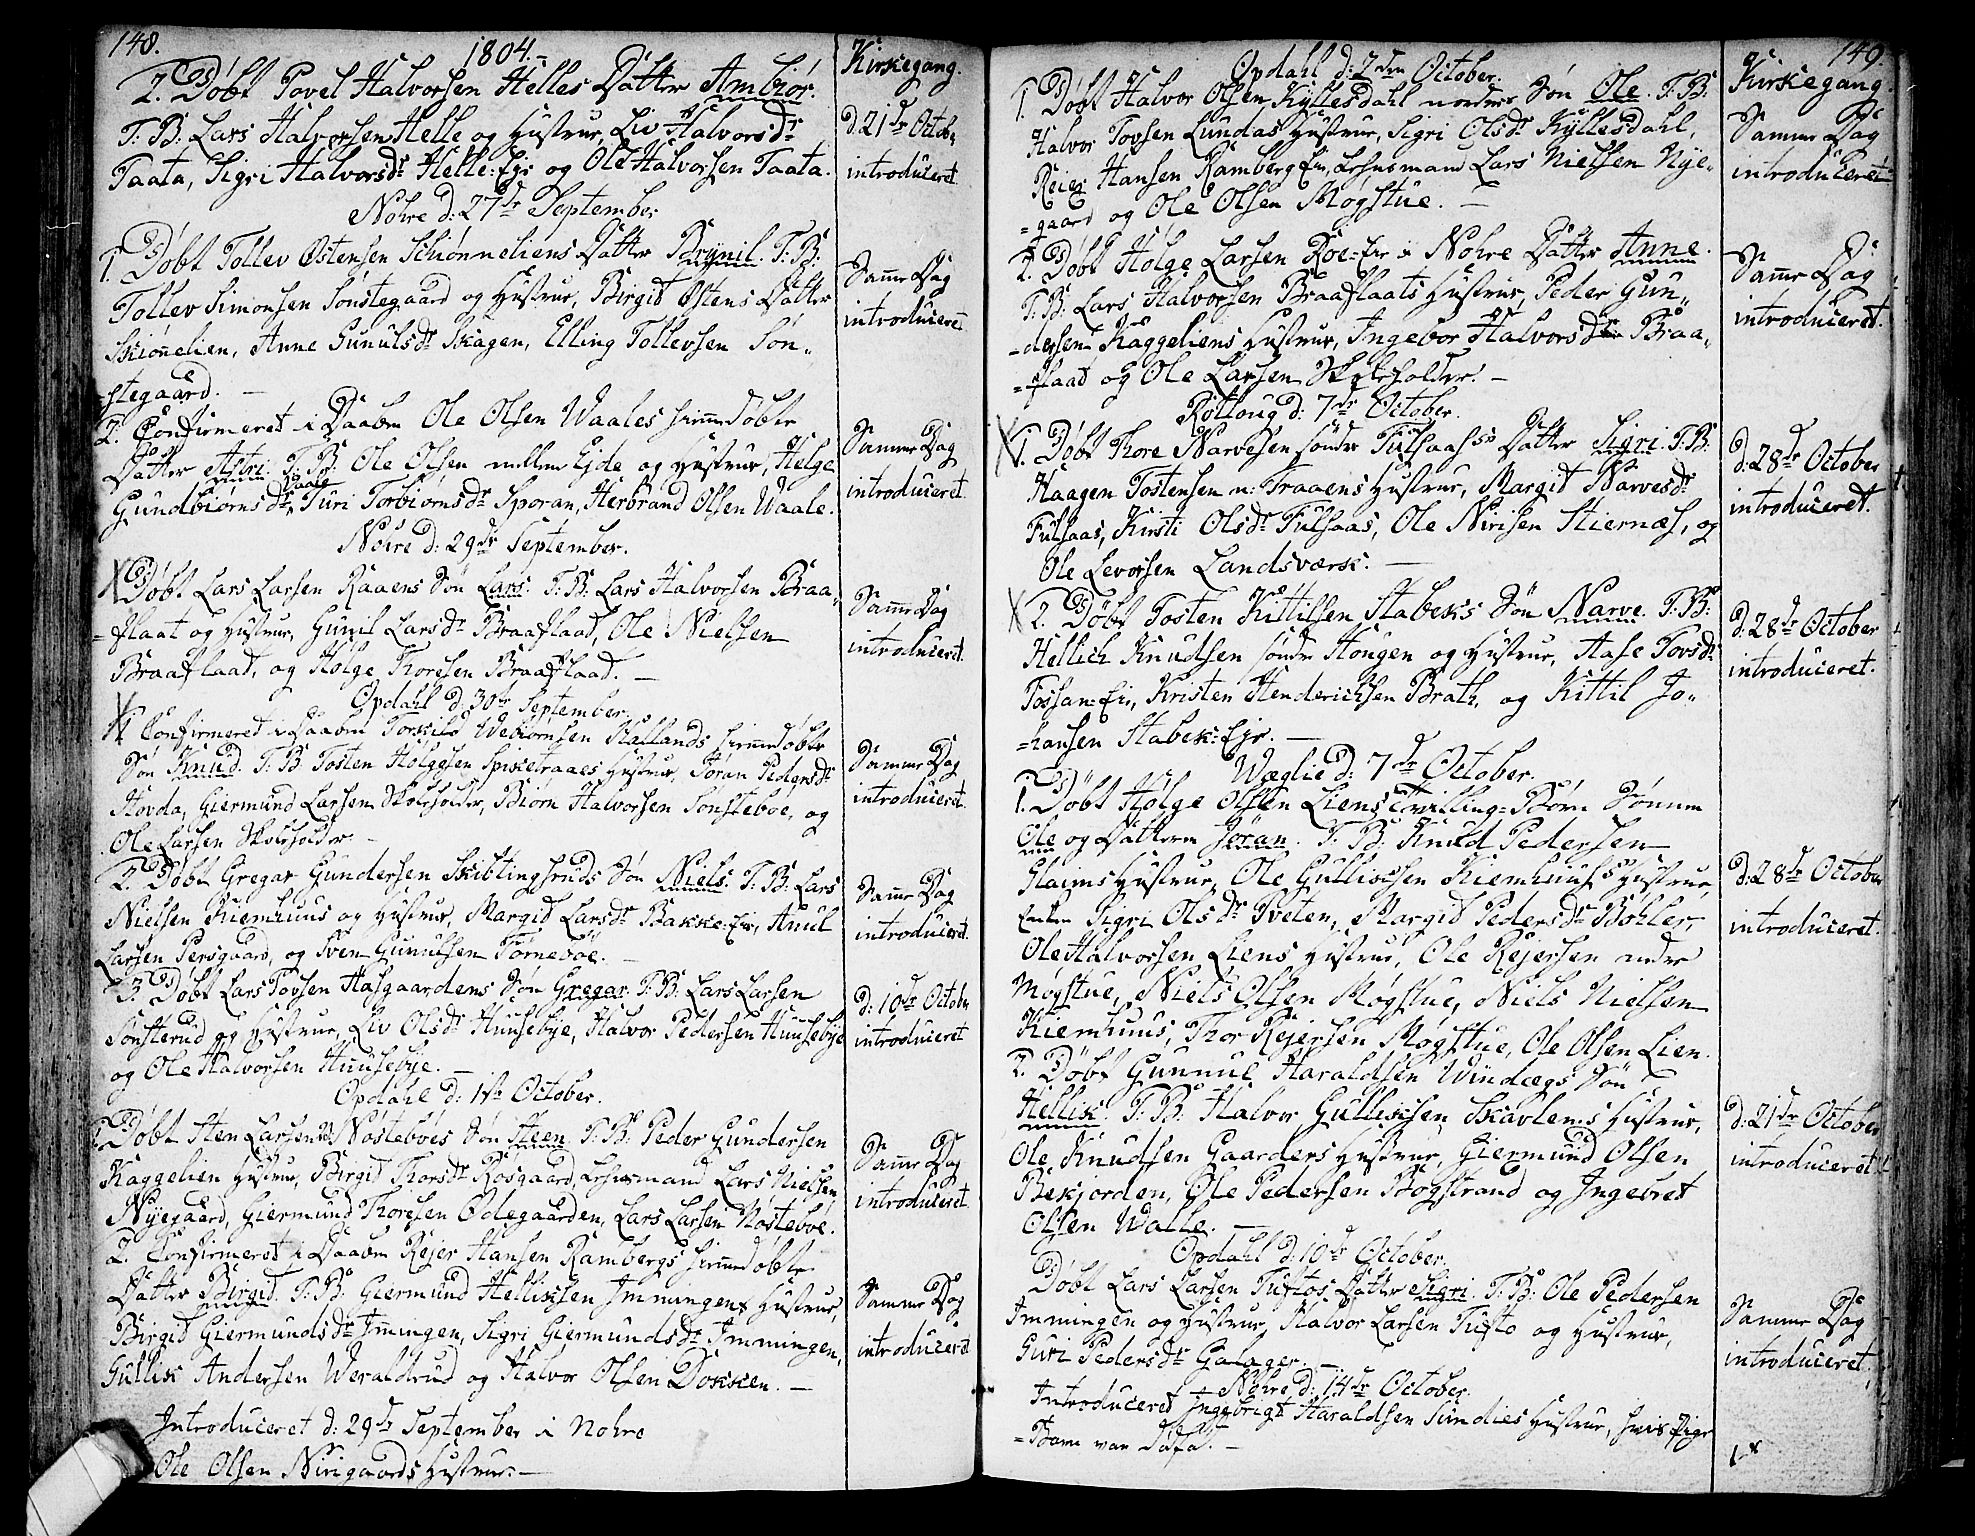 148.
1804.
Kirkegang.
2. Døbt Povel Halvorsen Helles Datter Ambiør.
T: B: Lars Halvorsen Helle og Hustrue, Liv Halvorsdr
Taata, Sigri Halvorsdr Helle-Eje og Ole Halvorsen Taata.
D: 21de Octobr
introduceret.
Nohre d: 27de September
1. Døbt Tollev Østensen Schiønneliens Datter Brynil. T: B:
Tollev Simonsen Sønstegaard og Hustrue, Birgit Østens Datter
Skiønnelien, Anne Gunulsdr Skagen, Elling Tollevsen Søn-
-stegaard.
Samme Dag
introduceret.
2. Confirmeret i Daaben Ole Olsen Waales hiemmedøbte
Datter Astri. T: B: Ole Olsen mellem Ejde og Hustrue, Helge
Gundbiørnsdr Waale, Turi Torbiørnsdr Sporan, Herbrand Olsen Waale.
Samme Dag
introduceret.
Nohre d: 29de September.
Døbt Lars Larsen Raaens Søn Lars. T: B: Lars Halvorsen Braa-
-flaat og Hustrue, Gunil Larsdr Braaflaad, Ole Nielsen
Braaflaad, og Holge Thoresen Braaflaad.
Samme Dag
introduceret.
Opdahl d: 30te September.
1. Confirmered i Daaben Torkild Webiørnsen Hallands hiemmedøbte
Søn Knud. T: B: Tosten Holgesen Spiketraaes Hustrue, Jøran Pedersdr
Hovda, Giermund Larsen Skoleholder, Biørn Halvorsen Sønsteboe, og
Ole Larsen Skoleholder.
Samme Dag
introduceret.
2. Døbt Gregar Gundersen Skistingsruds Søn Niels. T: B: Lars
Nielsen Kiemhuus og Hustrue, Margit Larsdr Bakke-Eie, Anul
Larsen Persgaard, og Sven Gunulsen Tørneboe.
Samme Dag
introduceret.
3. Døbt Lars Tovsen Hasgaardens Søn Gregar. T: B: Lars Larsen
Sønsterud og Hustrue, Liv Olsdr Huusebye, Halvor Pedersen Huusebye
og Ole Halvorsen Huusebye.
D: 10de Octobr
introduceret
Opdahl d: 1ste October.
1. Døbt Sten Larsen Nøsteboes Søn Steen. T: B: Peder Gundersen
Kaggelien Hustrue, Birgit Thorsdr Rosgaard, Lehnsmand Lars Nielsen
Nyegaard, Giermund Thoresen Ødegaarden, Lars Larsen Nøsteboe.
Samme Dag
introduceret.
2. Confirmeret i Daaben Rejer Hansen Rambergs hiemmedøbte
Datter Birgit. T: B: Giermund Helliksen Immingens Hustrue,
Birgit Giermundsdr Immingen, Sigri Giermundsdr Immingen,
Gullik Andersen Weraldrud og Halvor Olsen Dokken.
Samme Dag
introduceret
Introduceret d: 29de September i Nohre
Ole Olsen Nirigaards Hustrue.
149.
Kirkegang.
Opdahl d: 2den October.
1. Døbt Halvor Olsen Kyllesdahl nordres Søn Ole. T: B:
Halvor Tovsen Lundas Hustrue, Sigri Olsdr Kyllesdahl,
Reier Hansen Ramberg Eie, Lehnsmand Lars Nielsen Nye-
-gaard og Ole Olsen Møgstue.
Samme Dag
introduceret
2. Døbt Holge Larsen Roe-Eie i Nohre Datter Anne.
T: B: Lars Halvorsen Braaflaats Hustrue, Peder Gun-
-dersen Kaggeliens Hustrue, Ingebor Halvorsdr Braa-
-flaad og Ole Larsen Skoleholder.
Samme Dag
introduceret.
Rolloug d: 7de October.
1. Døbt Thore Narvesen søndre Fulsaas Datter Sigri. T: B:
Haagen Tostensen n: Fraaens Hustrue, Margit Narvesdr
Fulsaas, Kirsti Olsdr Fulsaas, Ole Nirisen Stiernæs, og
Ole Levorsen Landsværk.
d: 28de October
introduceret.
2. Døbt Tosten Kittilsen Stabeks Søn Narve. T: B:
Hellich Knudsen søndre Hougen og Hustrue, Aase Tovsdr
Fossan-Eie, Kristen Henderichsen Brath, og Kittil Jo-
-hansen Stabek-Eje.
d: 28de October
introduceret.
Wæglie d: 7de October.
1. Døbt Holge Olsen Liens Tvilling-Børn Sønnen
Ole og Datteren Jøran. T: B: Knud Pedersen
Glaims Hustrue, Ole Gulliksen Kiemhuus Hustrue,
Enken Sigri Olsdr Tveten, Margit Pedersdr Bohler,
Ole Halvorsen Liens Hustrue, Ole Rejersen nedre
Møgstue, Niels Olsen Møgstue, Niels Nielsen
Kiemhuus, Thor Rejersen Møgstue, Ole Olsen Lien.
d: 28de October
introduceret.
2. Døbt Gunnul Haraldsen Windegs Søn
Hellik. T: B: Halvor Gulliksen Skavlens Hustrue,
Ole Knudsen Gaarders Hustrue, Giermund Olsen
Bekjorden, Ole Pedersen Bogstrand og Ingebret
Olsen Walle.
d: 21de October
introduceret
Opdahl d: 10de October.
Døbt Lars Larsen Tuftos Datter Sigri. T: B: Ole Pedersen
Immingen og Hustrue, Halvor Larsen Tufto og Hustrue,
Guri Pedersdr Galager.
Samme Dag
introduceret.
Nohre d: 14de October.
Introduceret Ingebrigt Haraldsen Sundies Hustrue, hvis Pige
-Barn var